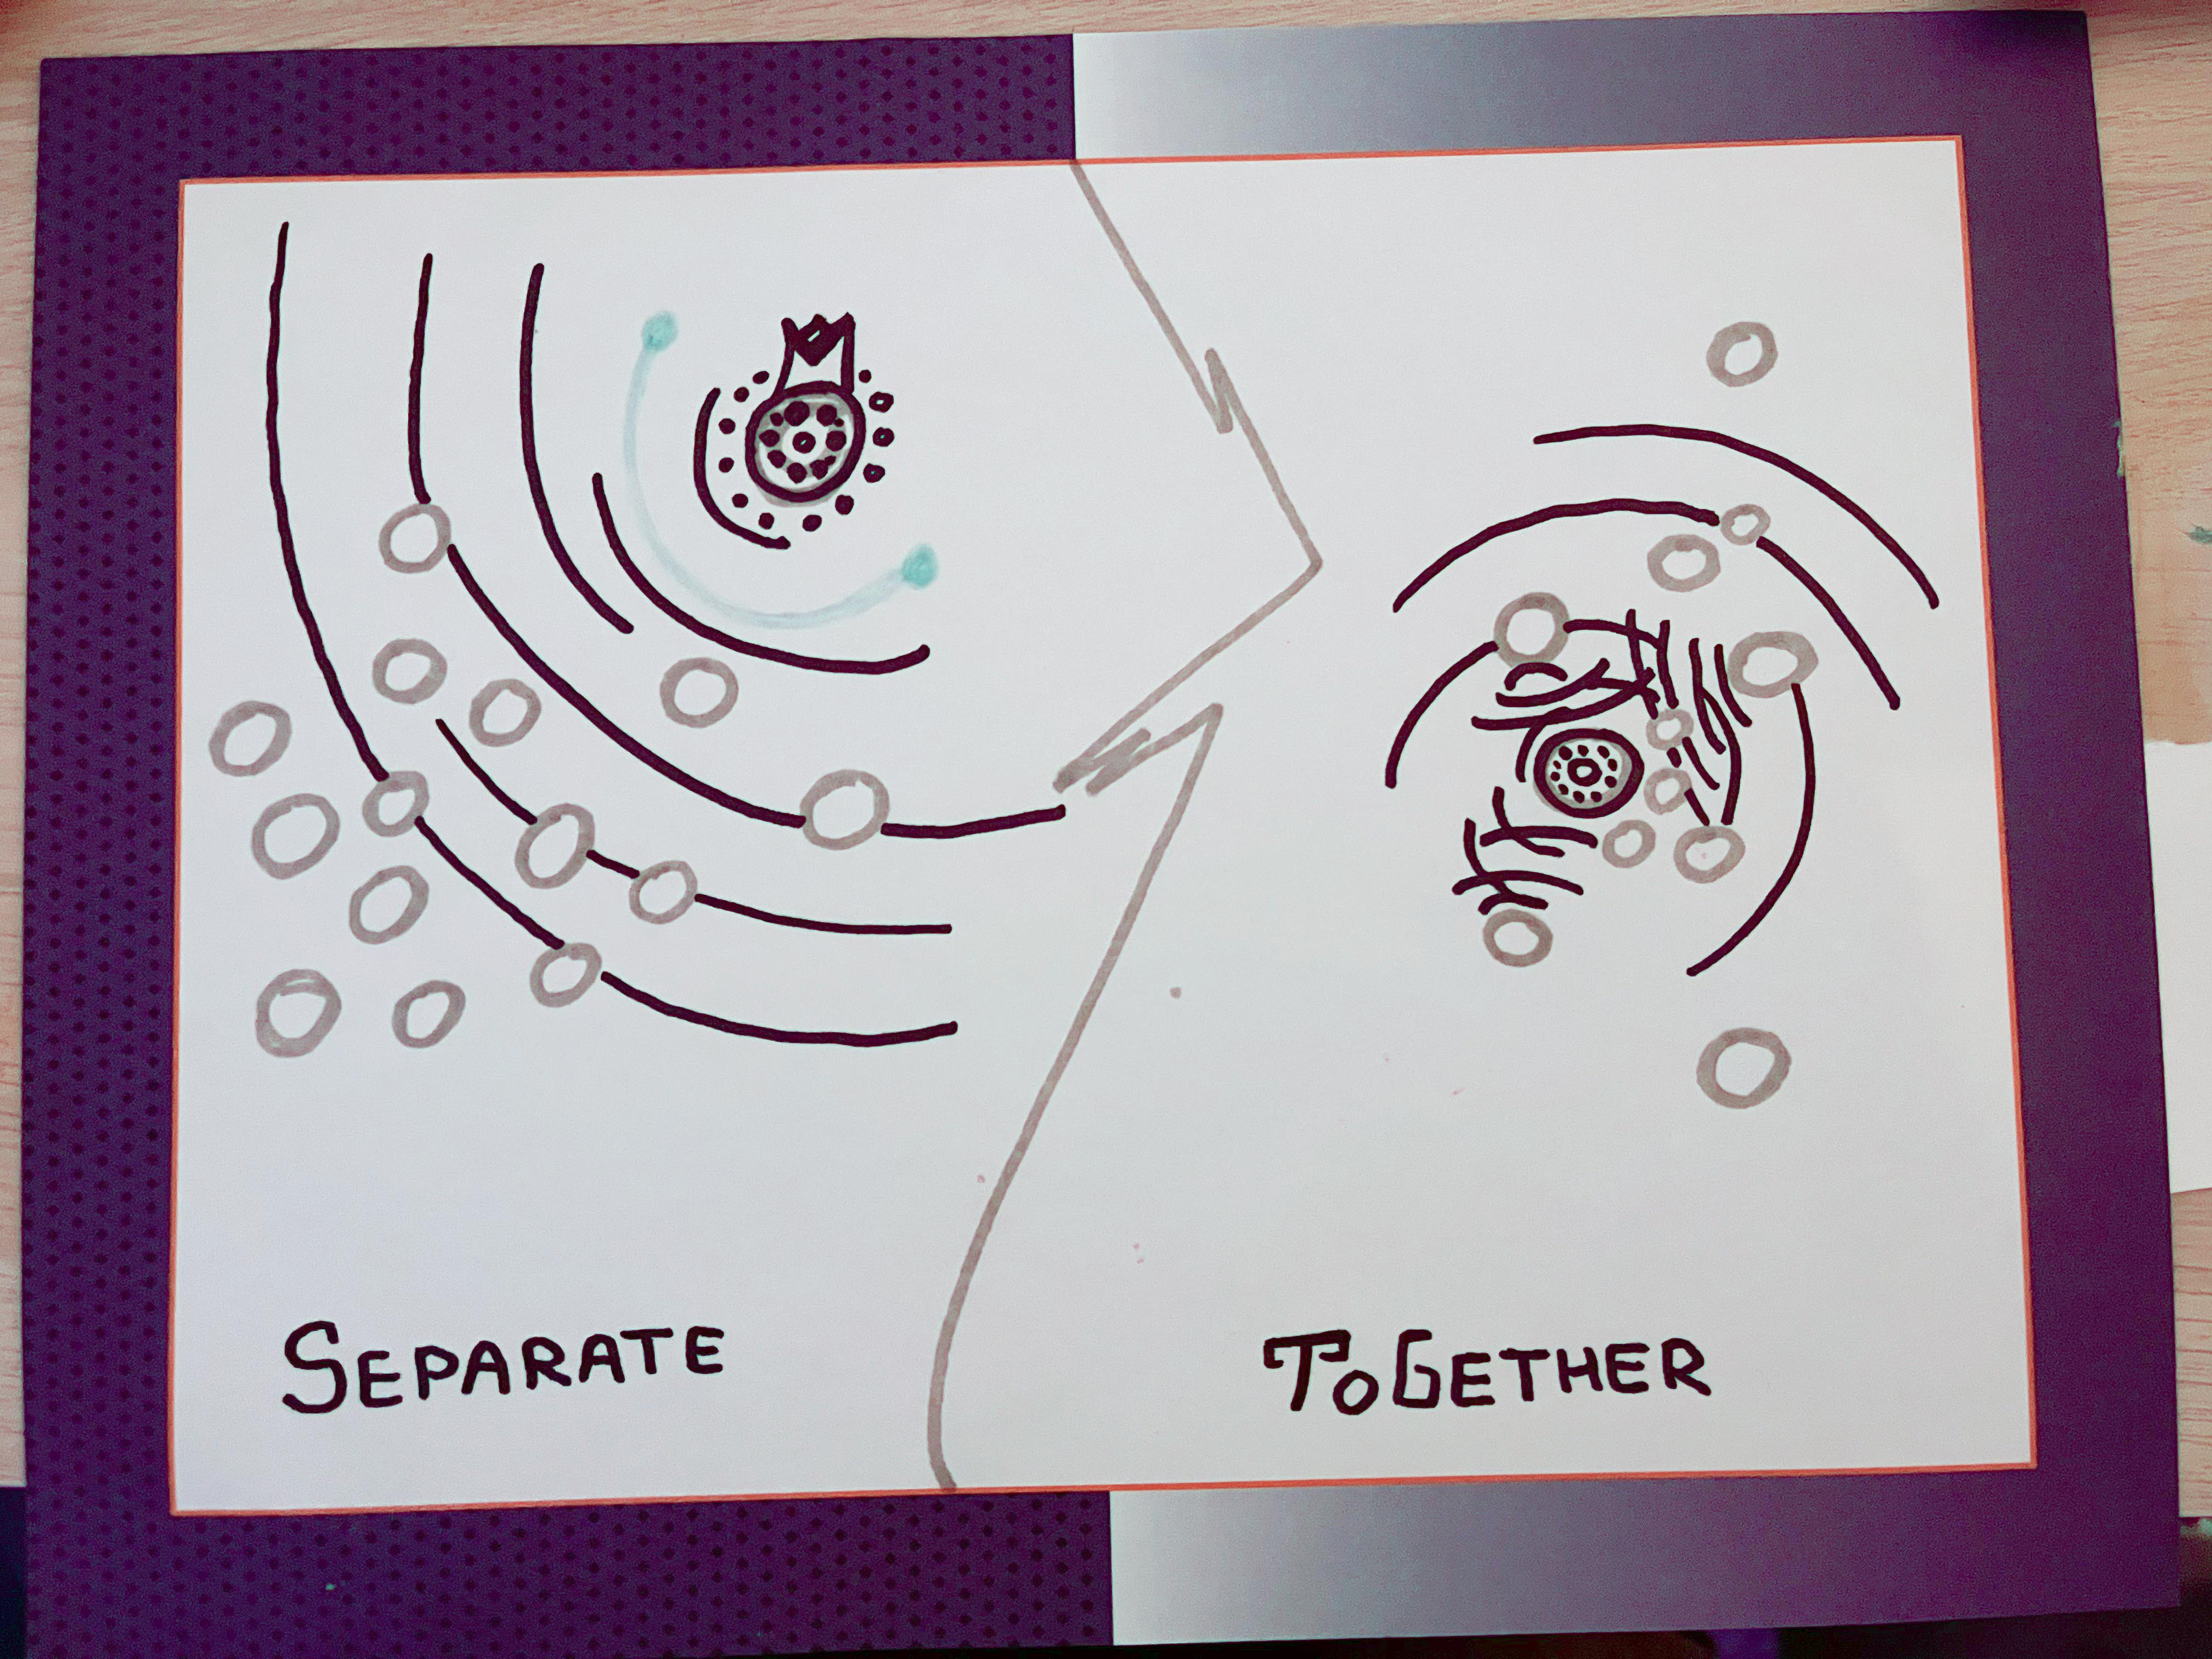 SEPARATE
TOGETHER